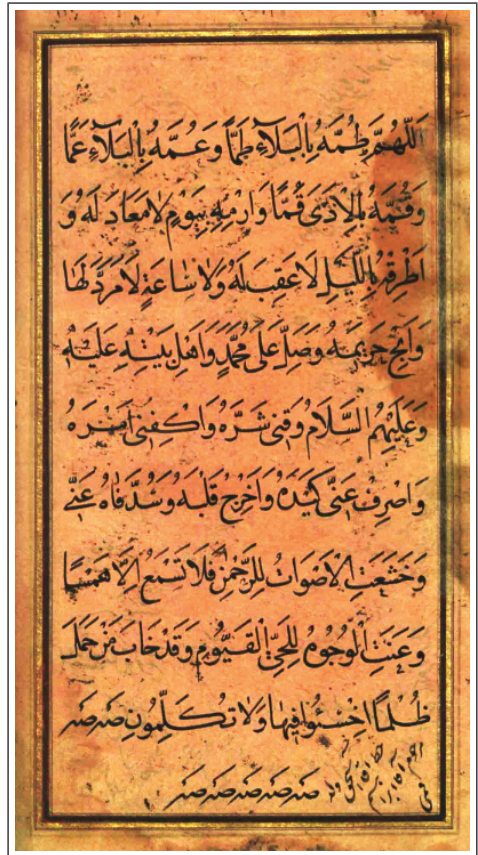 اَللّٰهُمَّ طُمَّهُ بِالْبَلَآءِ طَمًّا وَعُمَّهُ بِالْبَلَآءِ عَمًّا
وَقُمَّهُ بِالْاَذَى قَمًّا وَارْمِهِ بِيَوْمٍ لَا مَعَادَ لَهُ وَ
اَطْرِقْهُ بِاللَّيْلِ لَا عَقِبَ لَهُ وَلَا سَاعَةٍ لَا مَرَدَّ لَهَا
وَابِحْ حَرِيمَهُ وَصَلِّ عَلَى مُحَمَّدٍ وَاَهْلِ بَيْتِهِ عَلَيْهِ
وَعَلَيْهِمُ السَّلَامُ وَقِنِى شَرَّهُ وَاكْفِنِى اَمْرَهُ
وَاصْرِفْ عَنِّى كَيْدَهُ وَاَخْرِجْ قَلْبَهُ وَسُدَّ فَاهُ عَنِّى
وَخَشَعَتِ الْاَصْوَاتُ لِلرَّحْمٰنِ فَلَا تَسْمَعُ اِلَّا هَمْسًا
وَعَنَتِ الْوُجُوهُ لِلْحَىِّ الْقَيُّومِ وَقَدْ خَابَ مَنْ حَمَلَ
ظُلْمًا اخْسَئُوا فِيهَا وَلَا تُكَلِّمُونِ صَه صَه
صَه صَه صَه صَه صَه